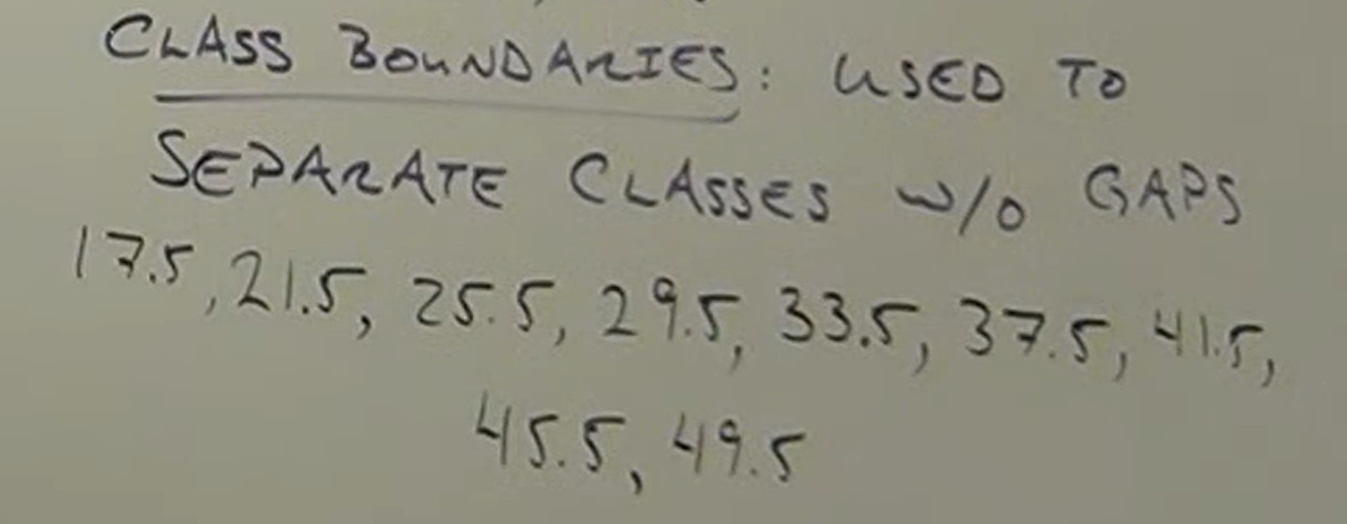 CLASS BOUNDARIES: USED TO
SEPARATE CLASSES W/O GAPS
17.5, 21.5, 25.5, 29.5, 33.5, 37.5, 41.5,
45.5, 49.5